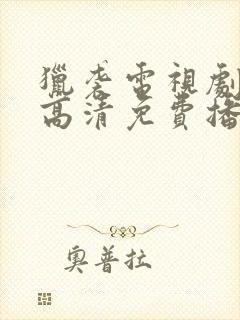 獵袭電視劇
高清免費播
奧普拉